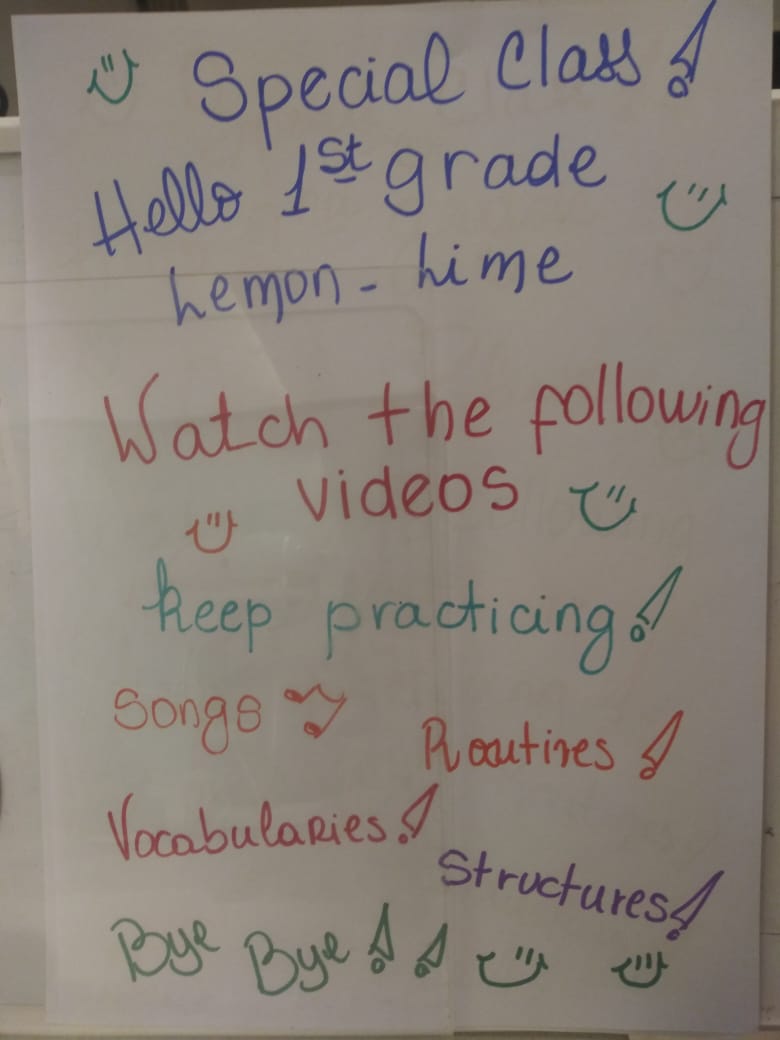 Special Class!
Hello 1st grade
Lemon - Lime
Watch the following
videos
keep practicing!
Songs
Routines!
Vocabularies!
Structures!
Bye Bye!!